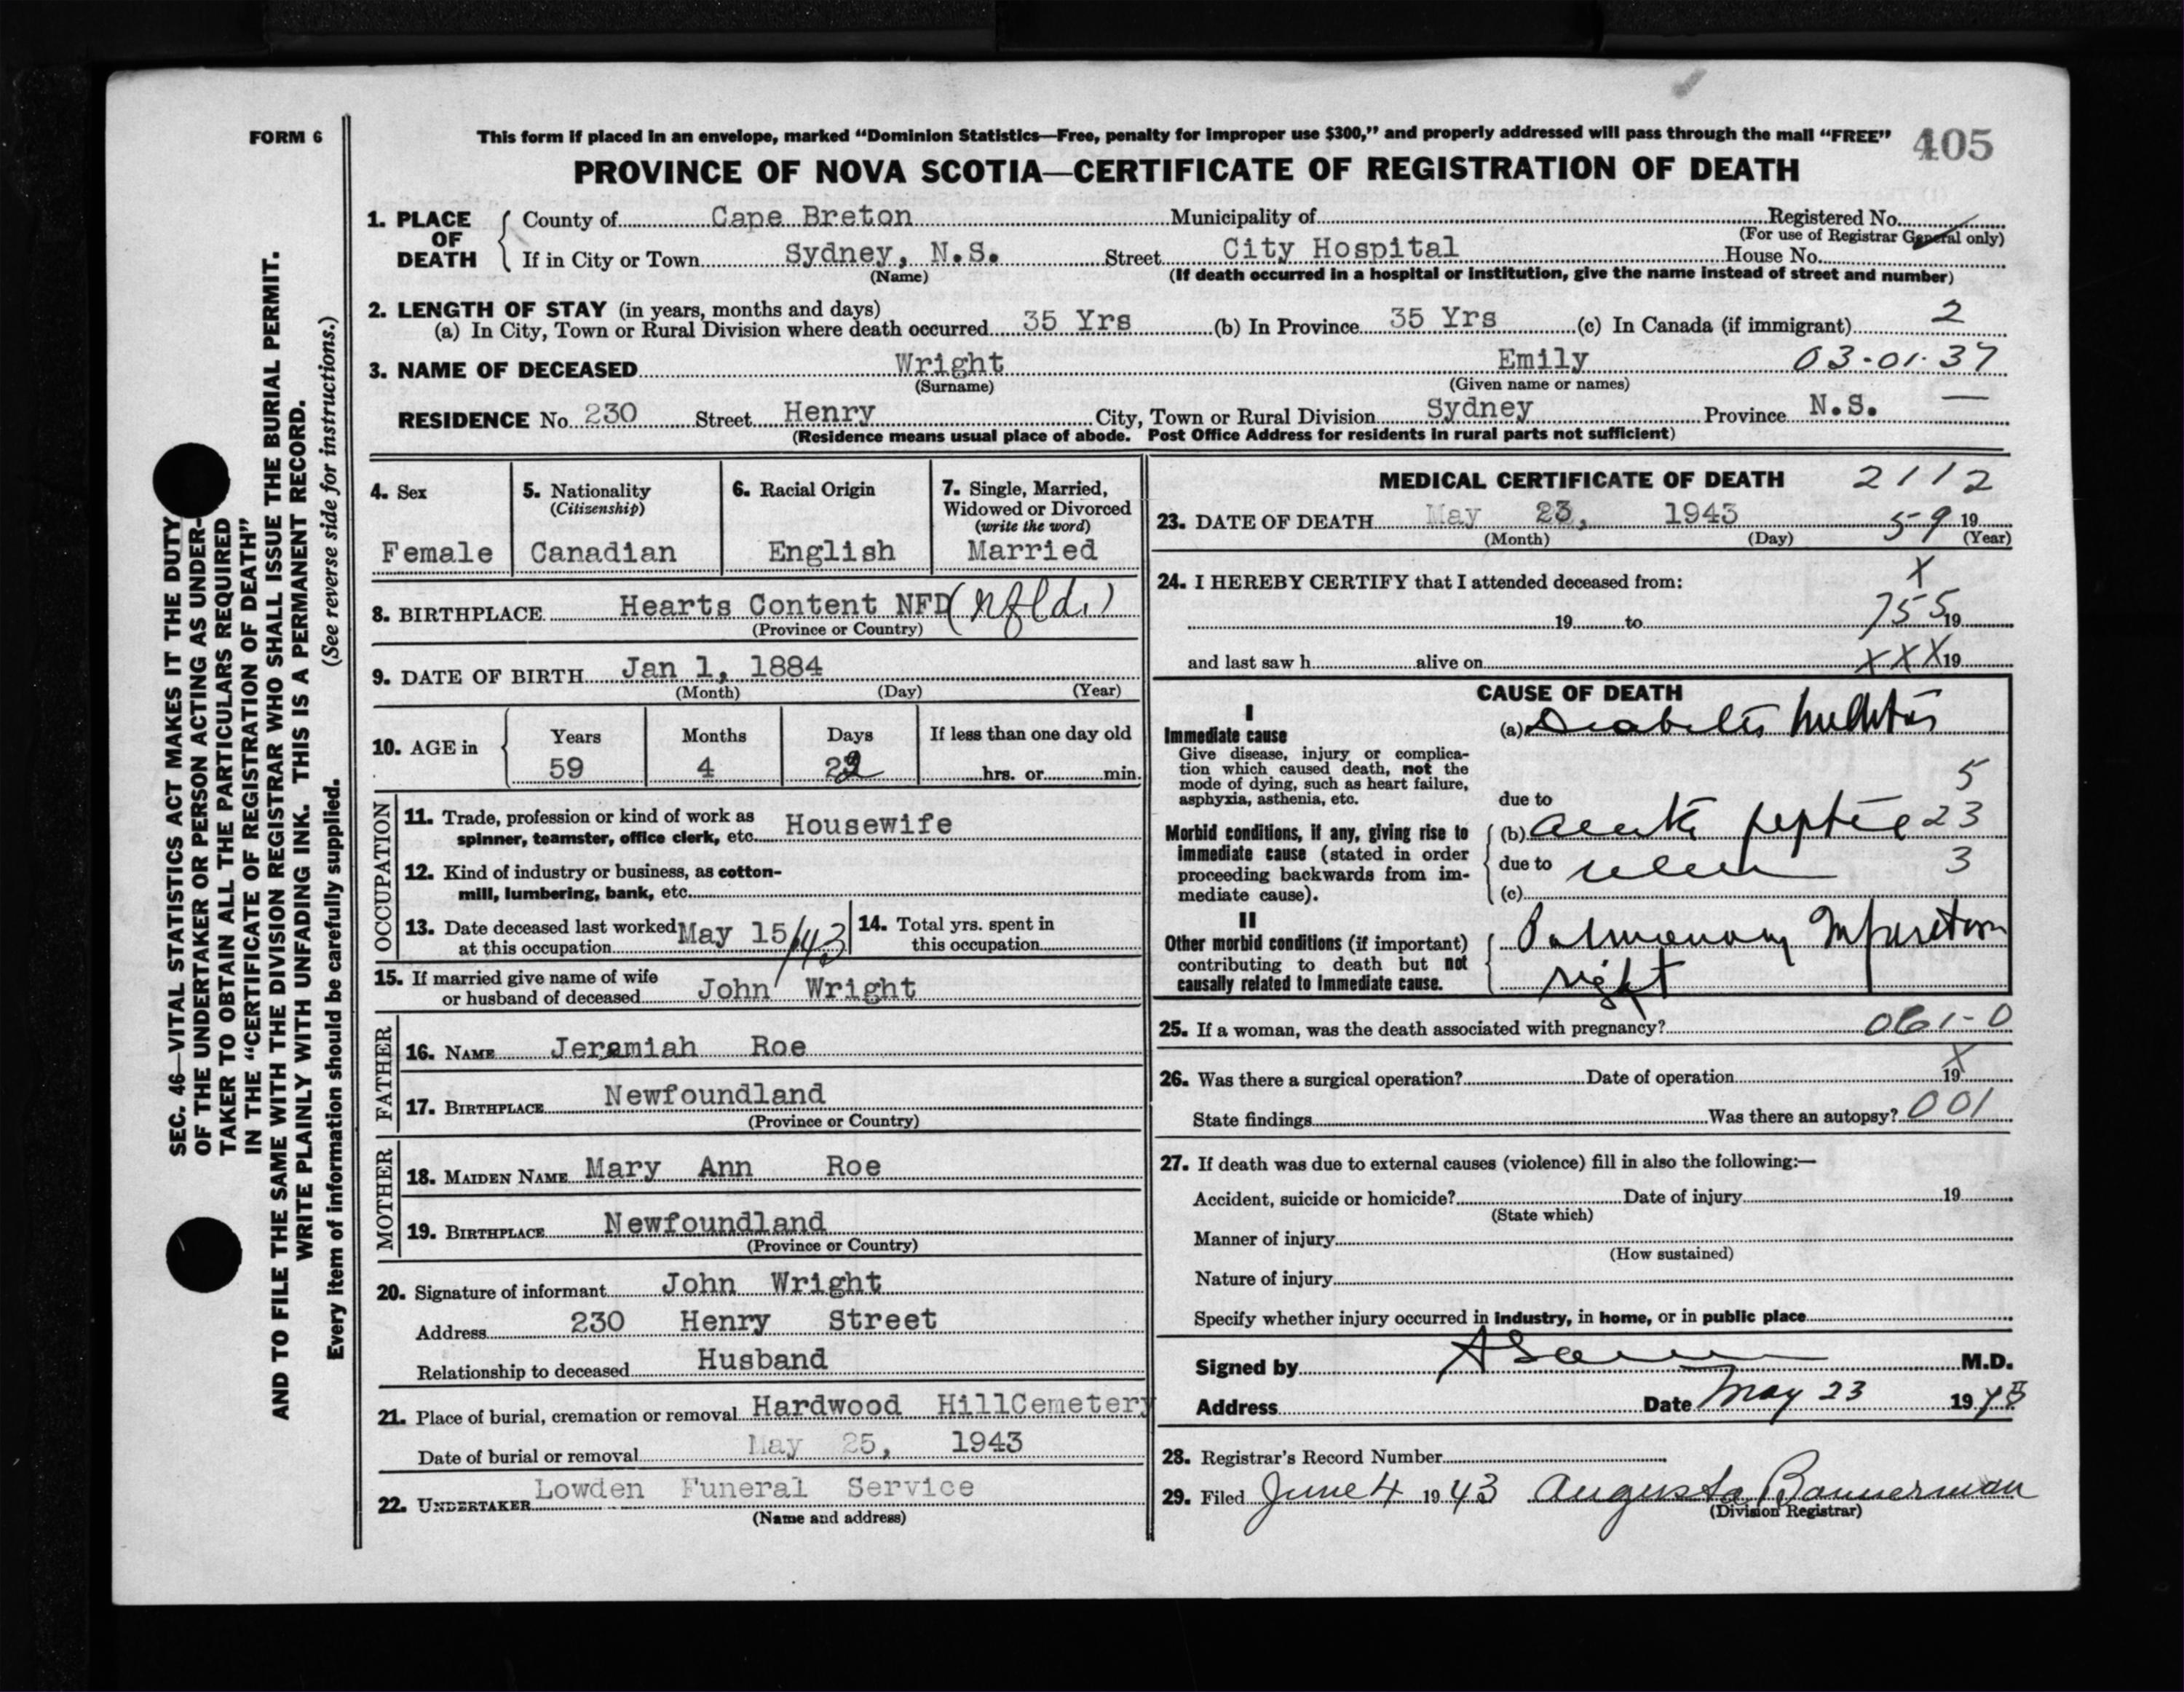 FORM 6
This form if placed in an envelope, marked “Dominion Statistics—Free, penalty for improper use $300,” and properly addressed will pass through the mail “FREE” 405
PROVINCE OF NOVA SCOTIA—CERTIFICATE OF REGISTRATION OF DEATH
1. PLACE OF DEATH
County of Cape Breton Municipality of Registered No.
(For use of Registrar General only)
If in City or Town Sydney, N.S. Street City Hospital House No.
(Name) (If death occurred in a hospital or institution, give the name instead of street and number)
2. LENGTH OF STAY (in years, months and days)
(a) In City, Town or Rural Division where death occurred 35 Yrs (b) In Province 35 Yrs (c) In Canada (if immigrant) 2
3. NAME OF DECEASED Wright Emily 03-01-37
(Surname) (Given name or names)
RESIDENCE No. 230 Street Henry City, Town or Rural Division Sydney Province N.S. —
(Residence means usual place of abode. Post Office Address for residents in rural parts not sufficient)
4. Sex
Female
5. Nationality
(Citizenship)
Canadian
6. Racial Origin
English
7. Single, Married,
Widowed or Divorced
(write the word)
Married
8. BIRTHPLACE Hearts Content NFD (Nfld.)
(Province or Country)
9. DATE OF BIRTH Jan 1, 1884
(Month) (Day) (Year)
10. AGE in
Years Months Days If less than one day old
59 4 22 hrs. or min.
OCCUPATION
11. Trade, profession or kind of work as
spinner, teamster, office clerk, etc. Housewife
12. Kind of industry or business, as cotton-
mill, lumbering, bank, etc.
13. Date deceased last worked
at this occupation May 15/43
14. Total yrs. spent in
this occupation
15. If married give name of wife
or husband of deceased John Wright
FATHER
16. NAME Jeremiah Roe
17. BIRTHPLACE Newfoundland
(Province or Country)
MOTHER
18. MAIDEN NAME Mary Ann Roe
19. BIRTHPLACE Newfoundland
(Province or Country)
20. Signature of informant John Wright
Address 230 Henry Street
Relationship to deceased Husband
21. Place of burial, cremation or removal Hardwood HillCemetery
Date of burial or removal May 25, 1943
22. UNDERTAKER Lowden Funeral Service
(Name and address)
MEDICAL CERTIFICATE OF DEATH 2112
23. DATE OF DEATH May 23, 1943 59 19
(Month) (Day) (Year)
24. I HEREBY CERTIFY that I attended deceased from: X
19 to 755 19
and last saw h alive on XXX 19
CAUSE OF DEATH
I
Immediate cause
Give disease, injury or complica-
tion which caused death, not the
mode of dying, such as heart failure,
asphyxia, asthenia, etc.
(a) Diabetes Mellitus
5
due to
Morbid conditions, if any, giving rise to
immediate cause (stated in order
proceeding backwards from im-
mediate cause).
(b) acute peptic 23
due to ulcer 3
(c)
II
Other morbid conditions (if important)
contributing to death but not
causally related to immediate cause.
Pulmonary Infarction
right
25. If a woman, was the death associated with pregnancy? 061-0
X
26. Was there a surgical operation? Date of operation 19
State findings Was there an autopsy? 001
27. If death was due to external causes (violence) fill in also the following:—
Accident, suicide or homicide? Date of injury 19
(State which)
Manner of injury
(How sustained)
Nature of injury
Specify whether injury occurred in industry, in home, or in public place
Signed by M.D.
Address Date May 23 1943
28. Registrar's Record Number
29. Filed June 4 1943 Augusta Bannerman
(Division Registrar)
SEC. 46—VITAL STATISTICS ACT MAKES IT THE DUTY
OF THE UNDERTAKER OR PERSON ACTING AS UNDER-
TAKER TO OBTAIN ALL THE PARTICULARS REQUIRED
IN THE “CERTIFICATE OF REGISTRATION OF DEATH”
AND TO FILE THE SAME WITH THE DIVISION REGISTRAR WHO SHALL ISSUE THE BURIAL PERMIT.
WRITE PLAINLY WITH UNFADING INK. THIS IS A PERMANENT RECORD.
Every item of information should be carefully supplied. (See reverse side for instructions.)